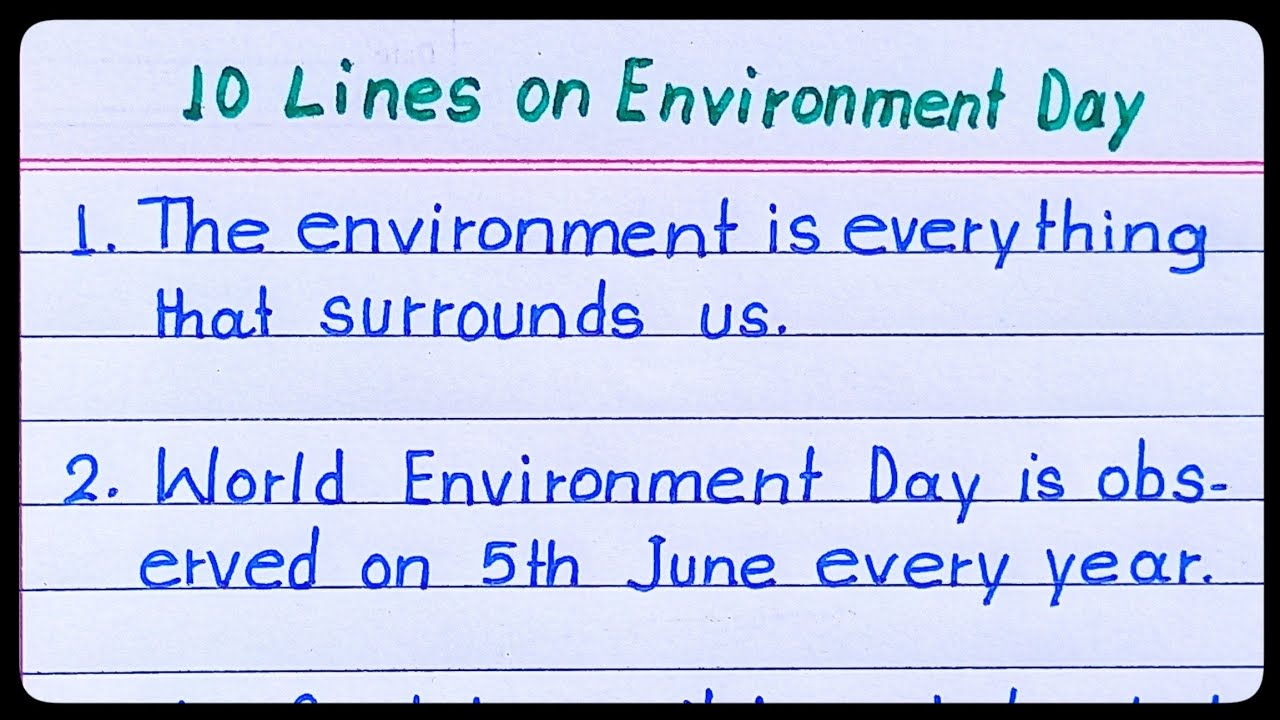 10 Lines on Environment Day
1. The environment is everything
that surrounds us.
2. World Environment Day is obs-
erved on 5th June every year.